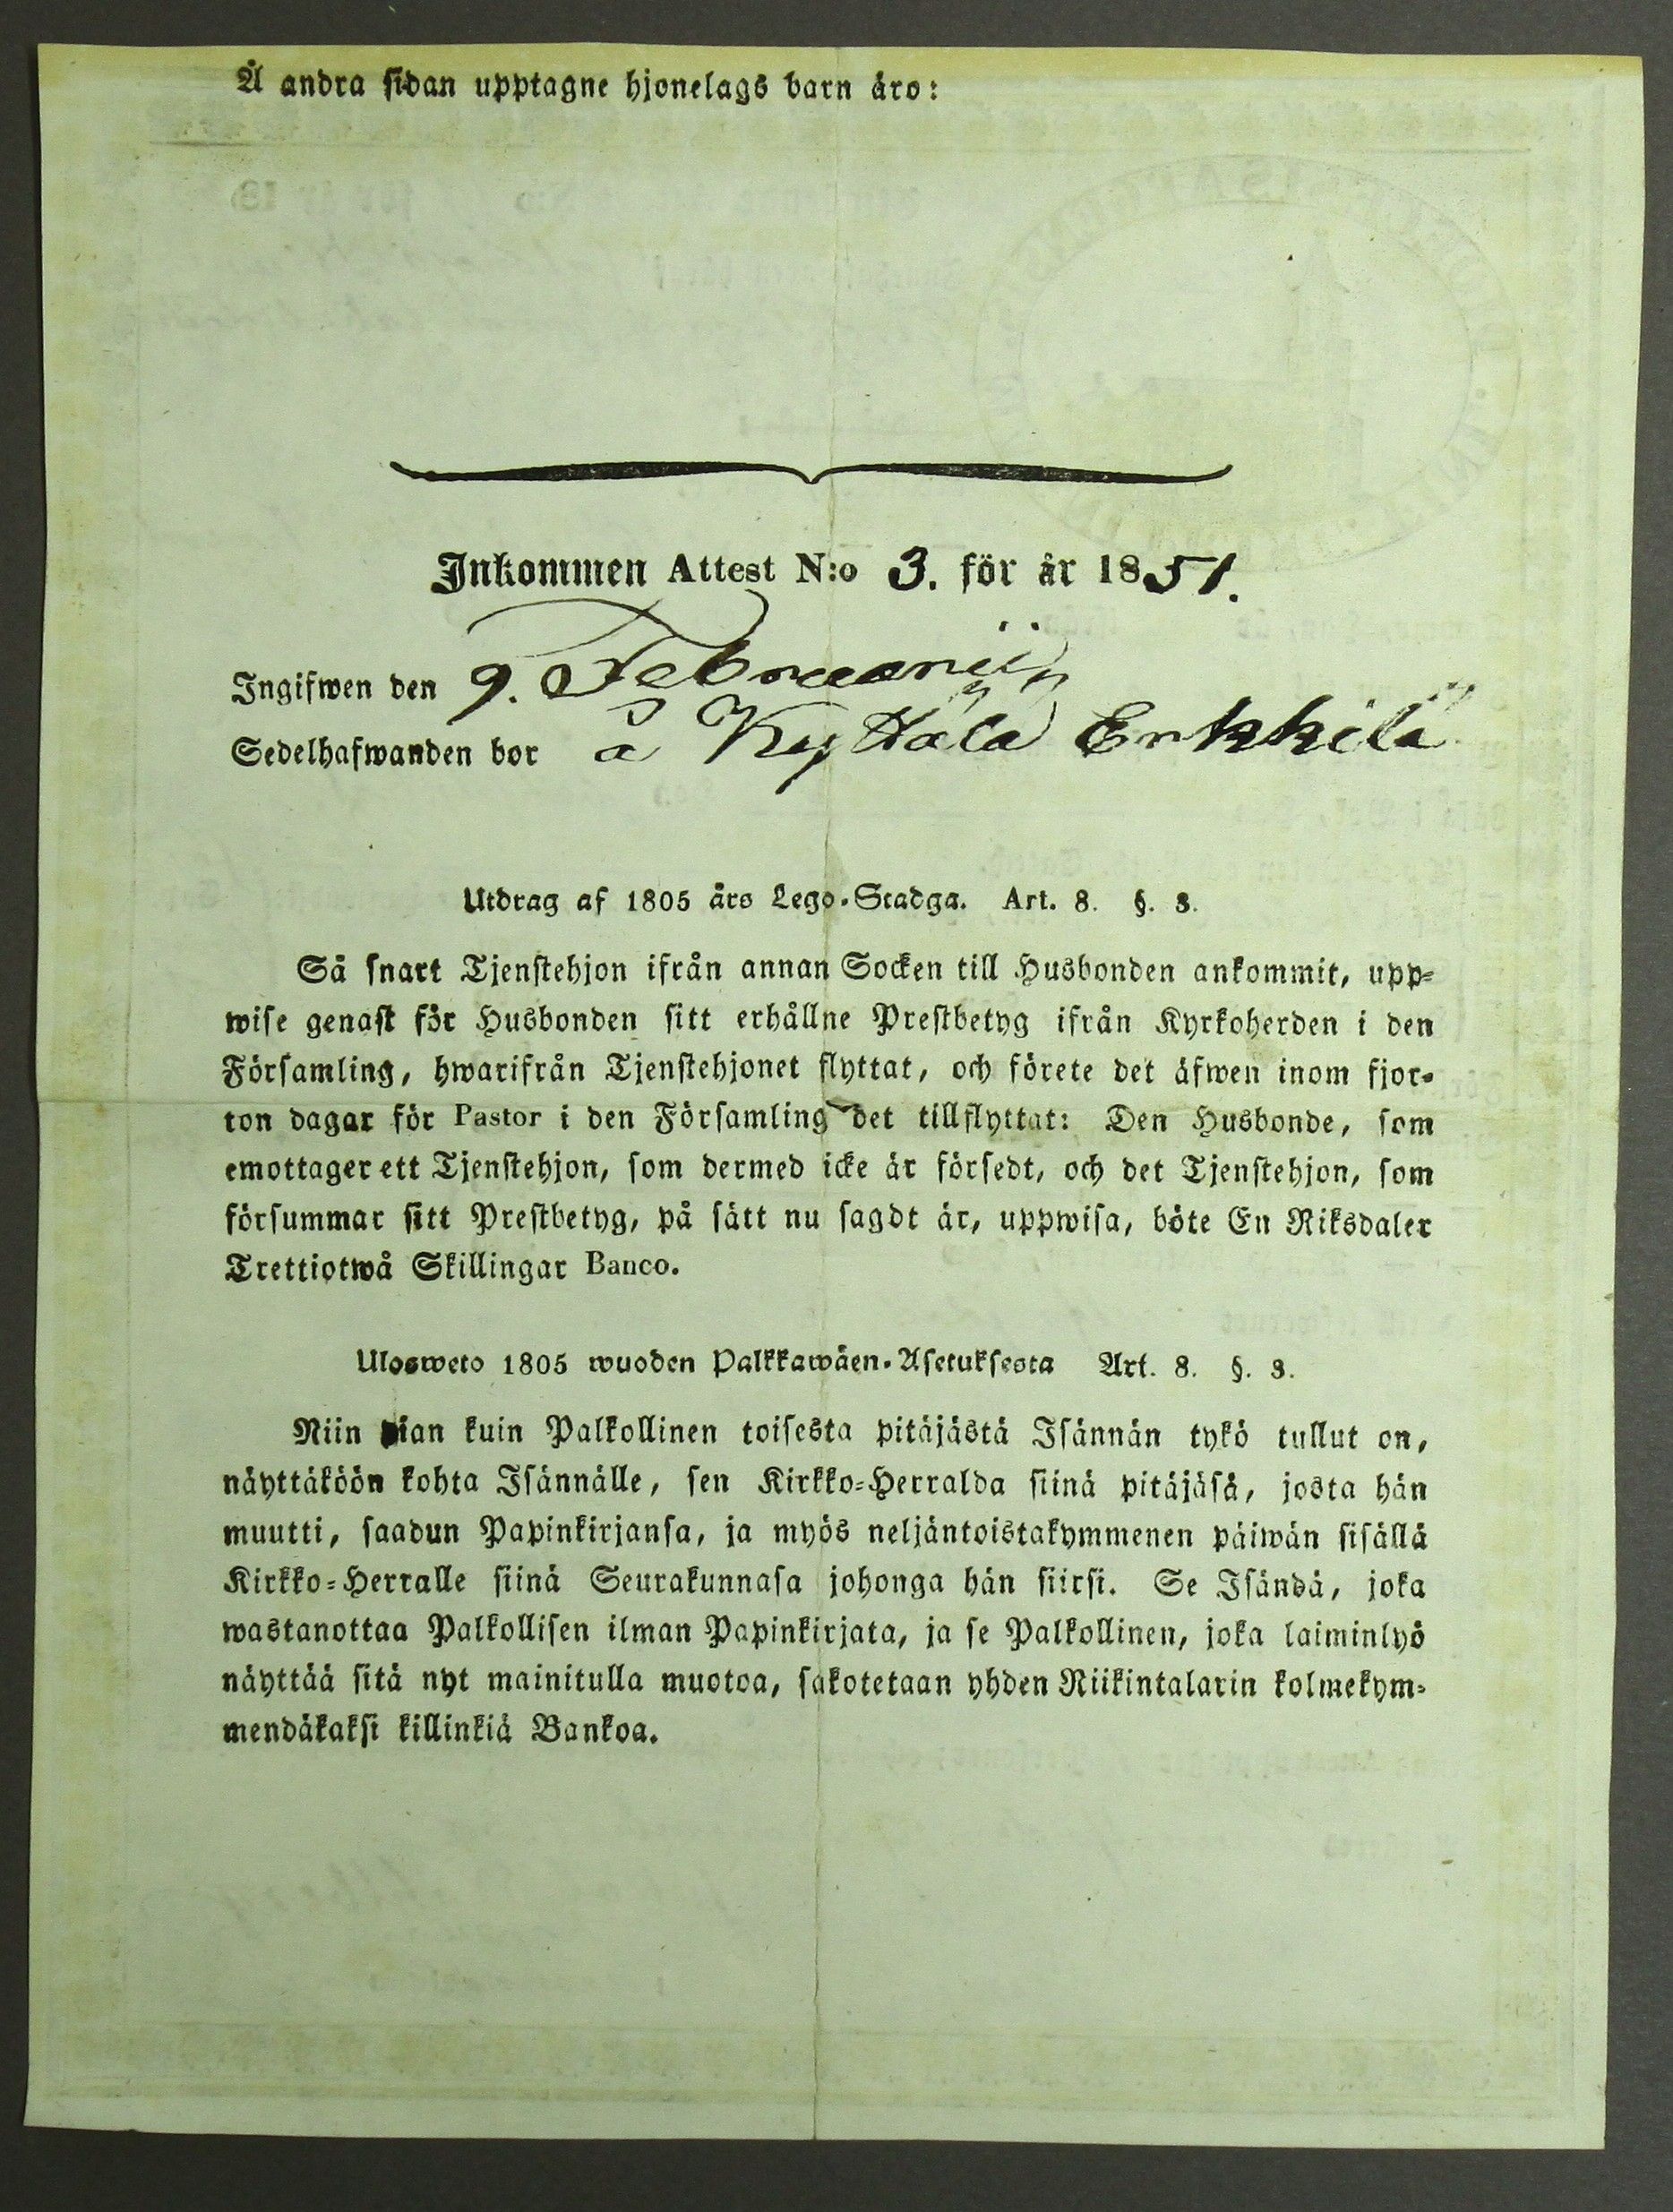 Å andra sidan upptagne hjonelags barn äro:
Inkommen Attest N:o 3. för år 1851.
Ingifwen den 9. Februarii
Sedelhafwanden bor å Kyttälä Erkkilä
Utdrag af 1805 års Lego-Stadga. Art. 8. §. 3.
Så snart Tjenstehjon ifrån annan Socken till Husbonden ankommit, upp-
wise genast för Husbonden sitt erhållne Prestbetyg ifrån Kyrkoherden i den
Församling, hwarifrån Tjenstehjonet flyttat, och förete det äfwen inom fjor-
ton dagar för Pastor i den Församling det tillflyttat: Den Husbonde, som
emottager ett Tjenstehjon, som dermed icke är försedt, och det Tjenstehjon, som
försummar sitt Prestbetyg, på sätt nu sagdt är, uppwisa, böte En Riksdaler
Trettiotwå Skillingar Banco.
Ulosweto 1805 wuoden Palkkawäen-Asetuksesta Art. 8. §. 3.
Niin pian kuin Palkollinen toisesta pitäjästä Isännän tykö tullut on,
näyttäköön kohta Isännälle, sen Kirkko-Herralda siinä pitäjäsä, josta hän
muutti, saadun Papinkirjansa, ja myös neljäntoistakymmenen päiwän sisällä
Kirkko-Herralle siinä Seurakunnasa johonga hän siirsi. Se Isändä, joka
wastanottaa Palkollisen ilman Papinkirjata, ja se Palkollinen, joka laiminlyö
näyttää sitä nyt mainitulla muotoa, sakotetaan yhden Riikintalarin kolmekym-
mendäkaksi killinkiä Bankoa.